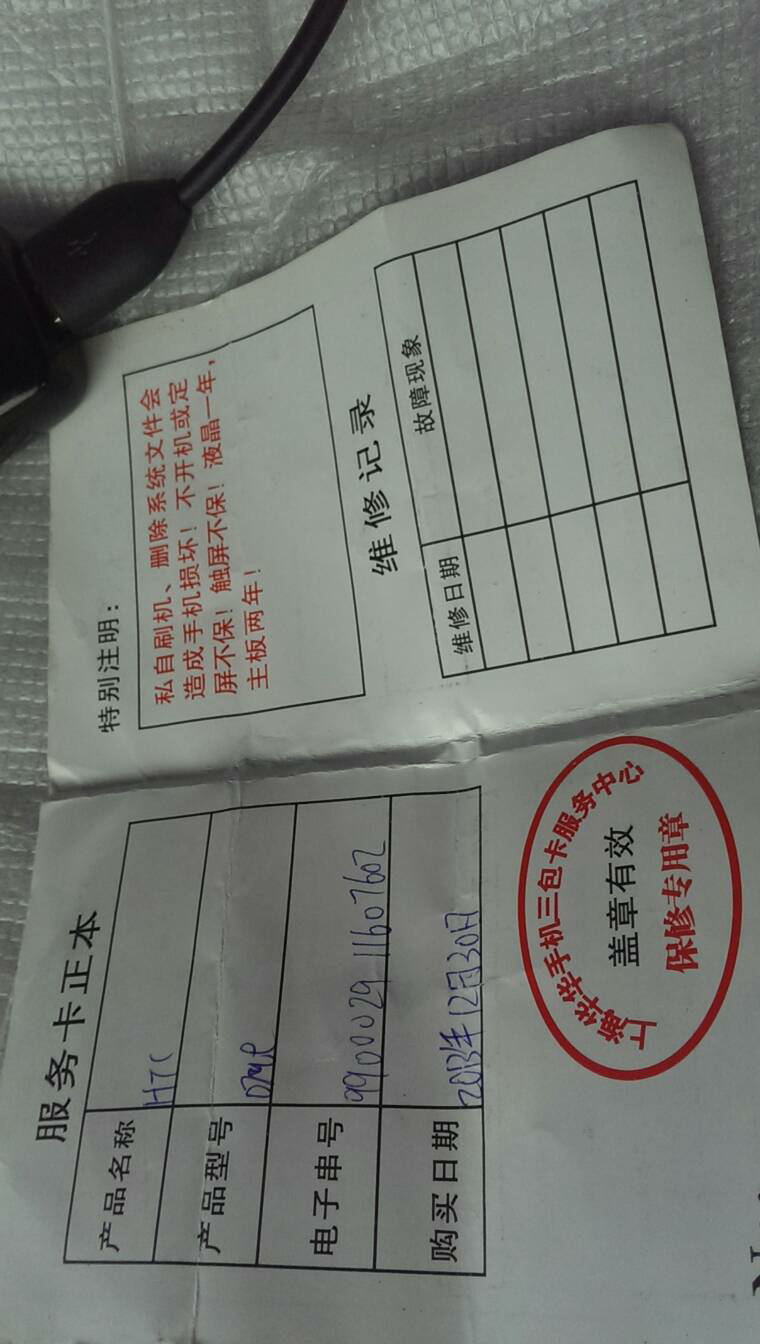 服务卡正本
产品名称 HTC
产品型号
电子串号 99000029 11607602
购买日期 2013年12月30日
华华手机三包卡服务中心
盖章有效
保修专用章
特别注明：
私自刷机、删除系统文件会
造成手机损坏！不开机或定
屏不保！触屏不保！液晶一年，
主板两年！
维修记录
维修日期 故障现象